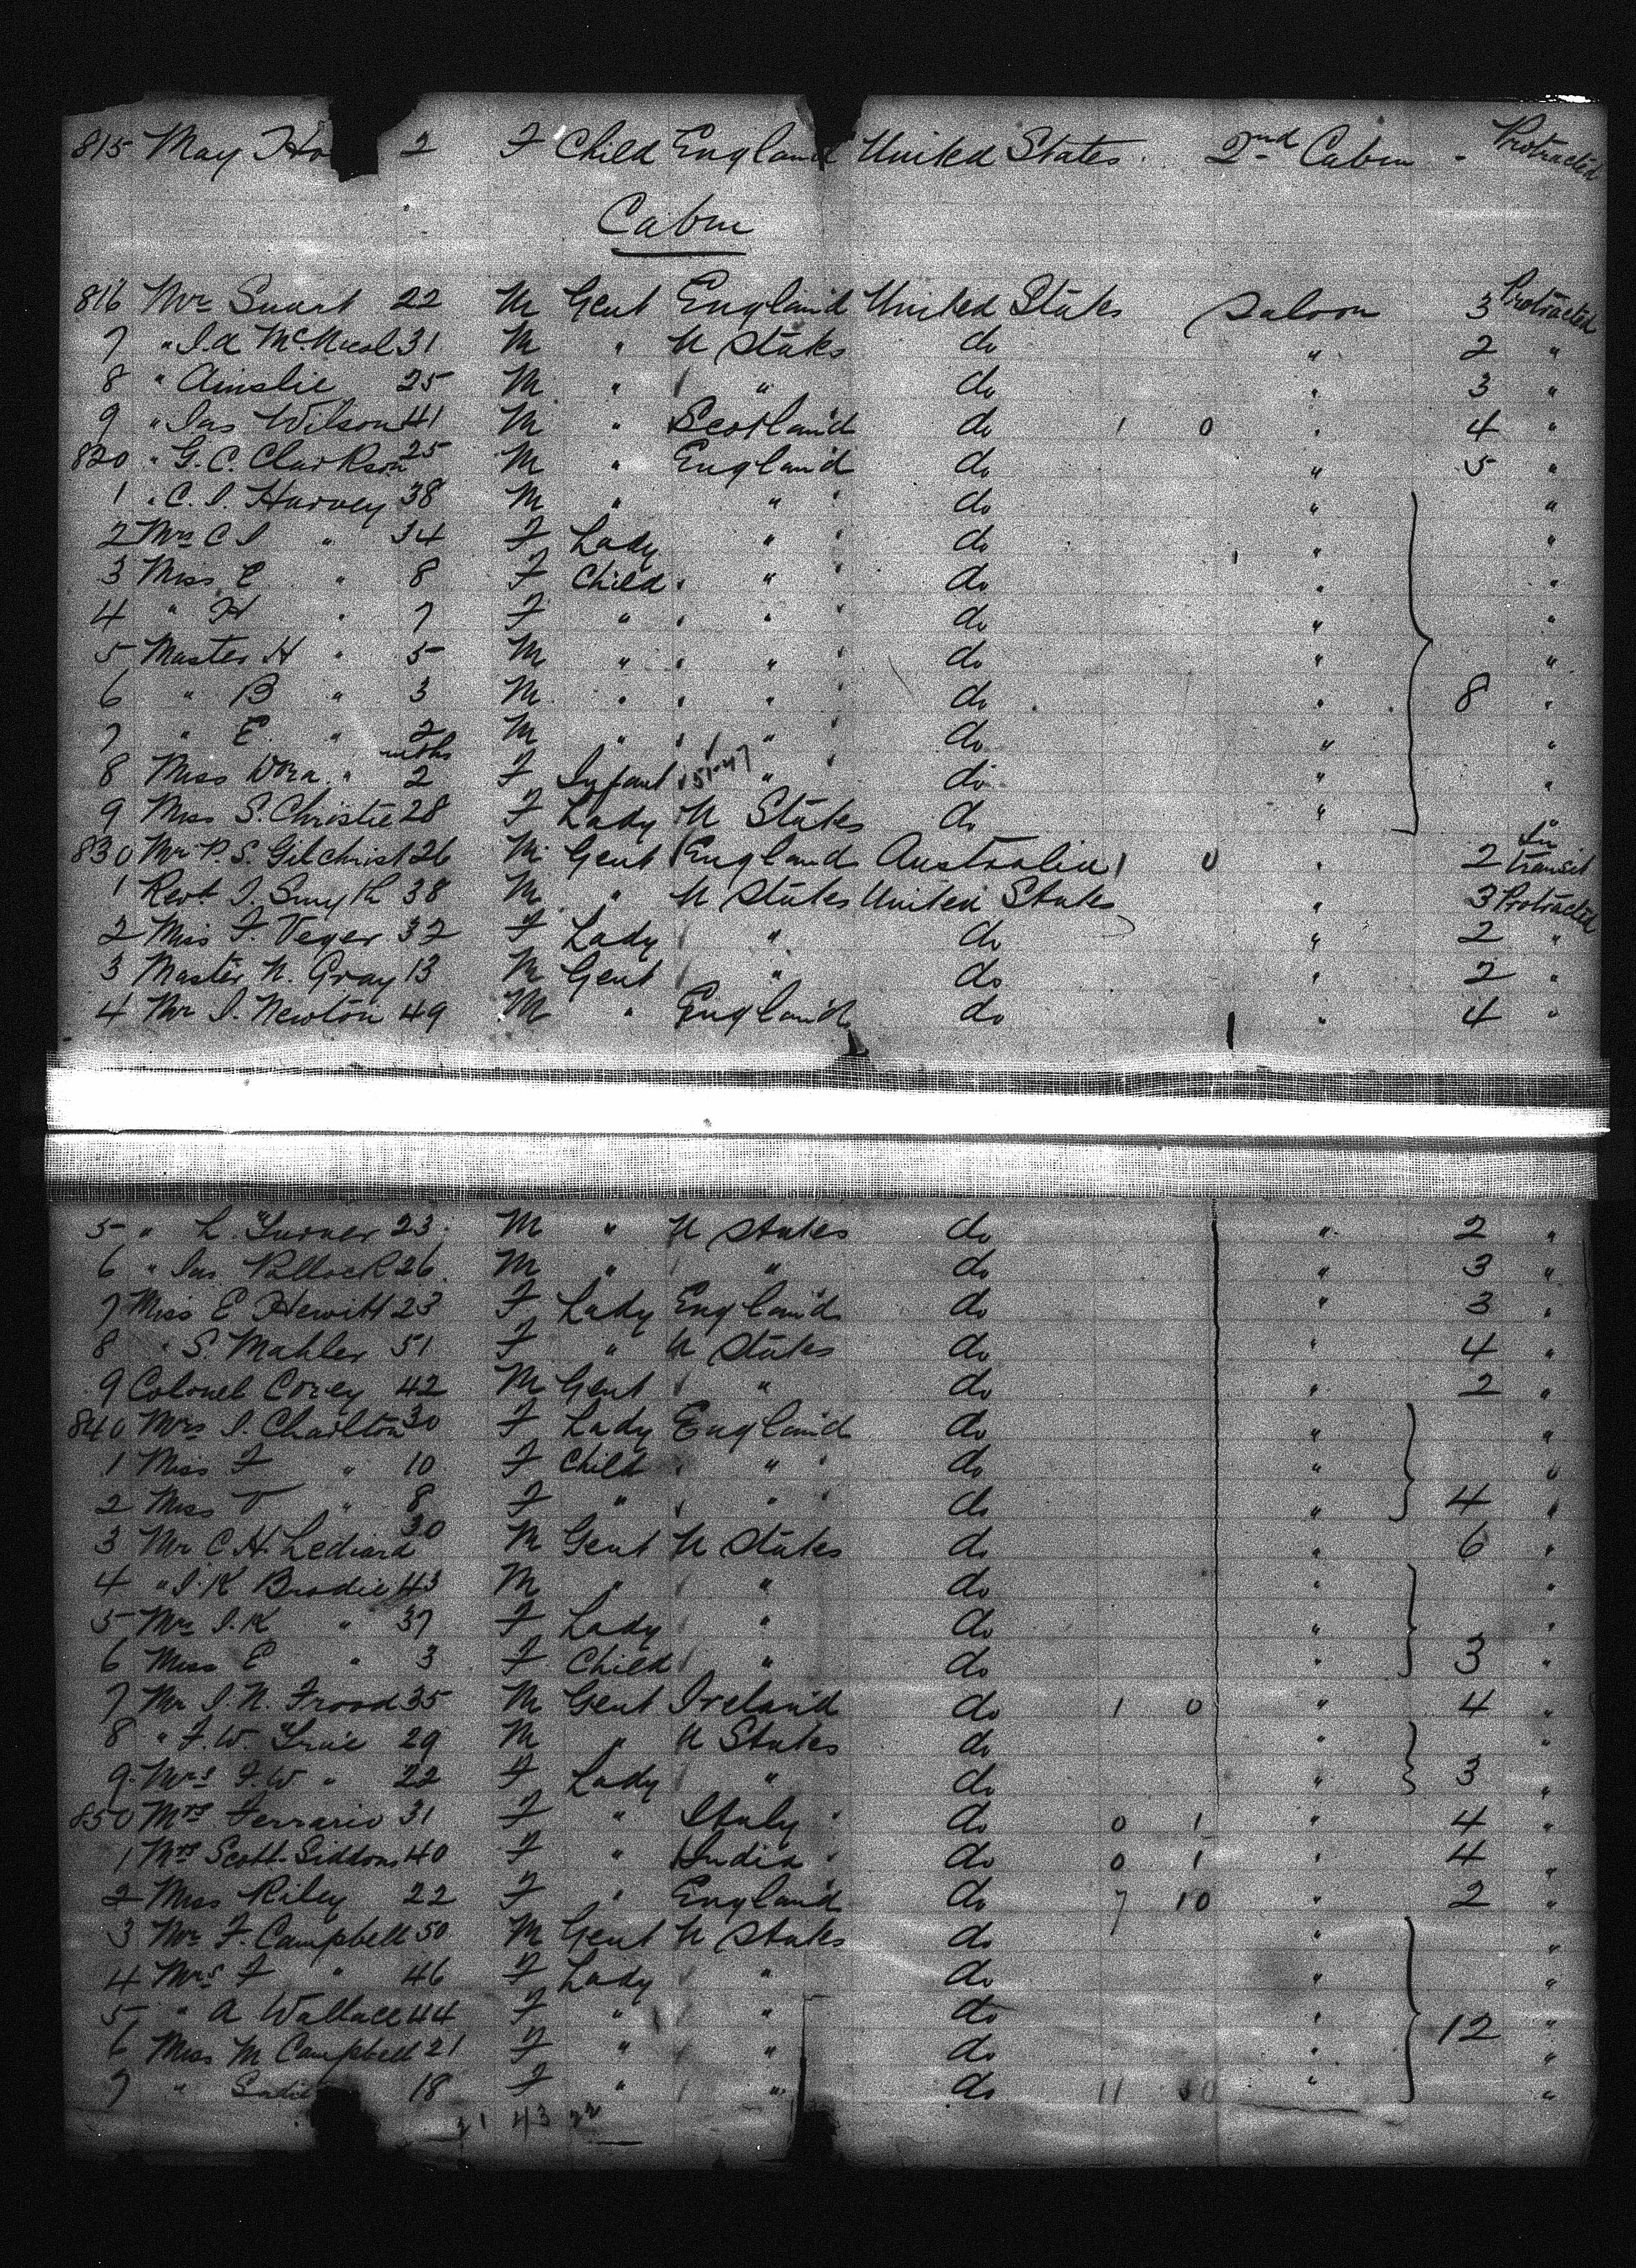 815 May Ho 2 F Child England United States 2nd Cabin - Protracted
Cabin
816 Mr Smart 22 M Gent England United States Saloon 3 Protracted
7 " J.A McNicol 31 M " U States do " 2 "
8 " Ainslie 25 M " " do " 3 "
9 " Jas Wilson 41 M " Scotland do 1 0 " 4 "
820 " G.C. Clarkson 25 M " England do " 5 "
1 " C.J. Harvey 38 M " " do " "
2 Mrs C J " 34 F Lady " do " "
3 Miss E " 8 F Child " do " "
4 " H " 7 F " " do " "
5 Master H " 5 M " " do " "
6 " B " 3 M " " do " 8 "
7 " E " 2 M " " do " "
8 Miss Dora " mths 2 F Infant 51-47 " do " "
9 Miss S. Christie 28 F Lady U States do " "
830 Mr P.S. Gilchrist 26 M Gent England Australia 1 0 " 2 In Transit
1 Revt J. Smyth 38 M " U States United States " 3 Protracted
2 Miss F. Veyer 32 F Lady " do " 2 "
3 Master N. Gray 13 M Gent " do " 2 "
4 Mr J. Newton 49 M " England do " 4 "
5 " L. Turner 23 M " U States do " 2 "
6 " Jas Pollock 26 M " " do " 3 "
7 Miss E Hewitt 23 F Lady England do " 3 "
8 " S. Mahler 51 F " U States do " 4 "
9 Colonel Corey 42 M Gent " do " 2 "
840 Mrs J. Charlton 30 F Lady England do " "
1 Miss F " 10 F Child " do " "
2 Miss V " 8 F " " do " 4 "
3 Mr C.H. Lediard 30 M Gent U States do " 6 "
4 " J.K Brodie 43 M " " do " "
5 Mrs J.K " 37 F Lady " do " "
6 Miss E " 3 F Child " do " 3 "
7 Mr J.N. Frood 35 M Gent Ireland do 1 0 " 4 "
8 " F.W. 29 M " U States do " "
9 Mrs F.W " 22 F Lady " do " 3 "
850 Mrs Ferrario 31 F " Italy do 0 1 " 4 "
1 Mrs Scott-Siddons 40 F " India do 0 1 " 4 "
2 Miss Riley 22 F " England do 7 10 " 2 "
3 Mr F. Campbell 50 M Gent U States do " "
4 Mrs F " 46 F Lady " do " "
5 " A Wallace 44 F " " do " 12 "
6 Miss M Campbell 21 F " " do " "
7 " Sadie 18 F " " do 11 10 " "
43 22